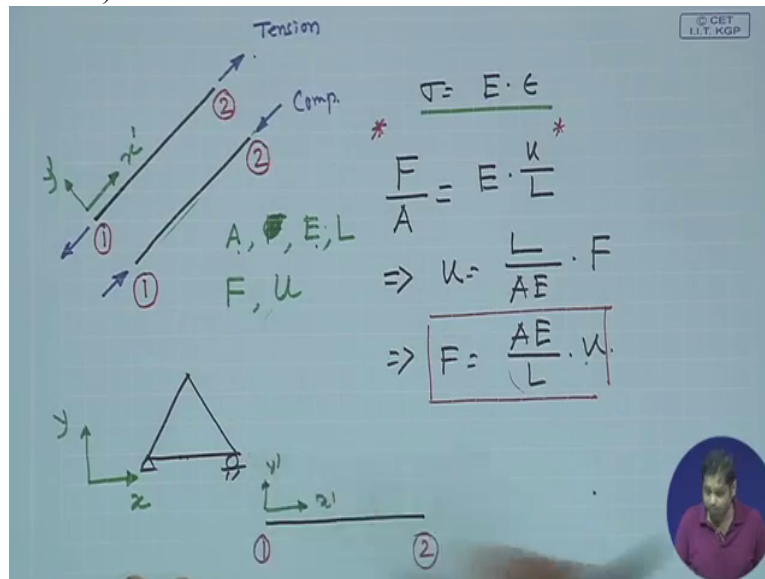 © CET
I.I.T. KGP
Tension
②
Comp.
②
y'
x'
①
①
A, E, L
F, u
σ = E · ϵ
* F/A = E · u/L *
=> u = L/AE · F
=> F = AE/L · u
y
x
y'
x'
①
②